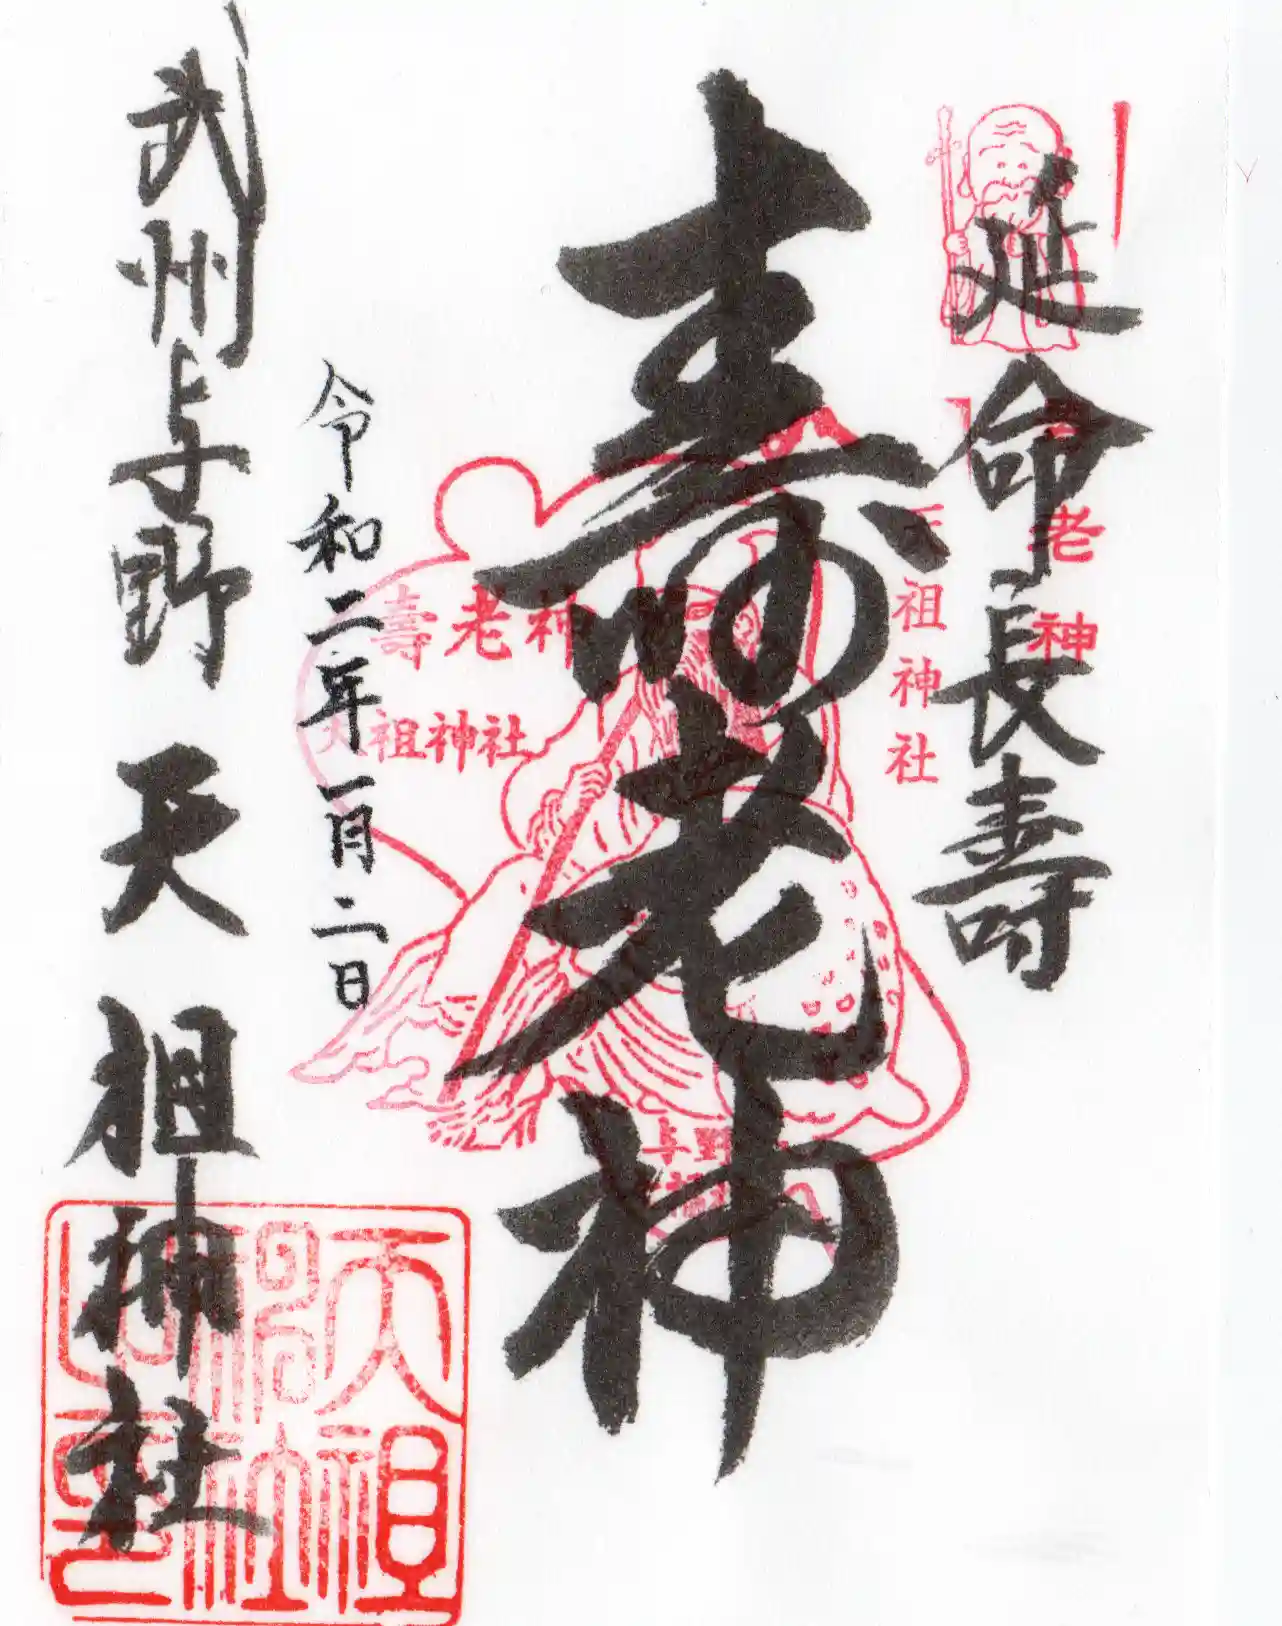 延命長寿
寿老神
令和二年一月二日
武州与野 天祖神社
老神
天祖神社
壽老神
天祖神社
与野
天祖
神社